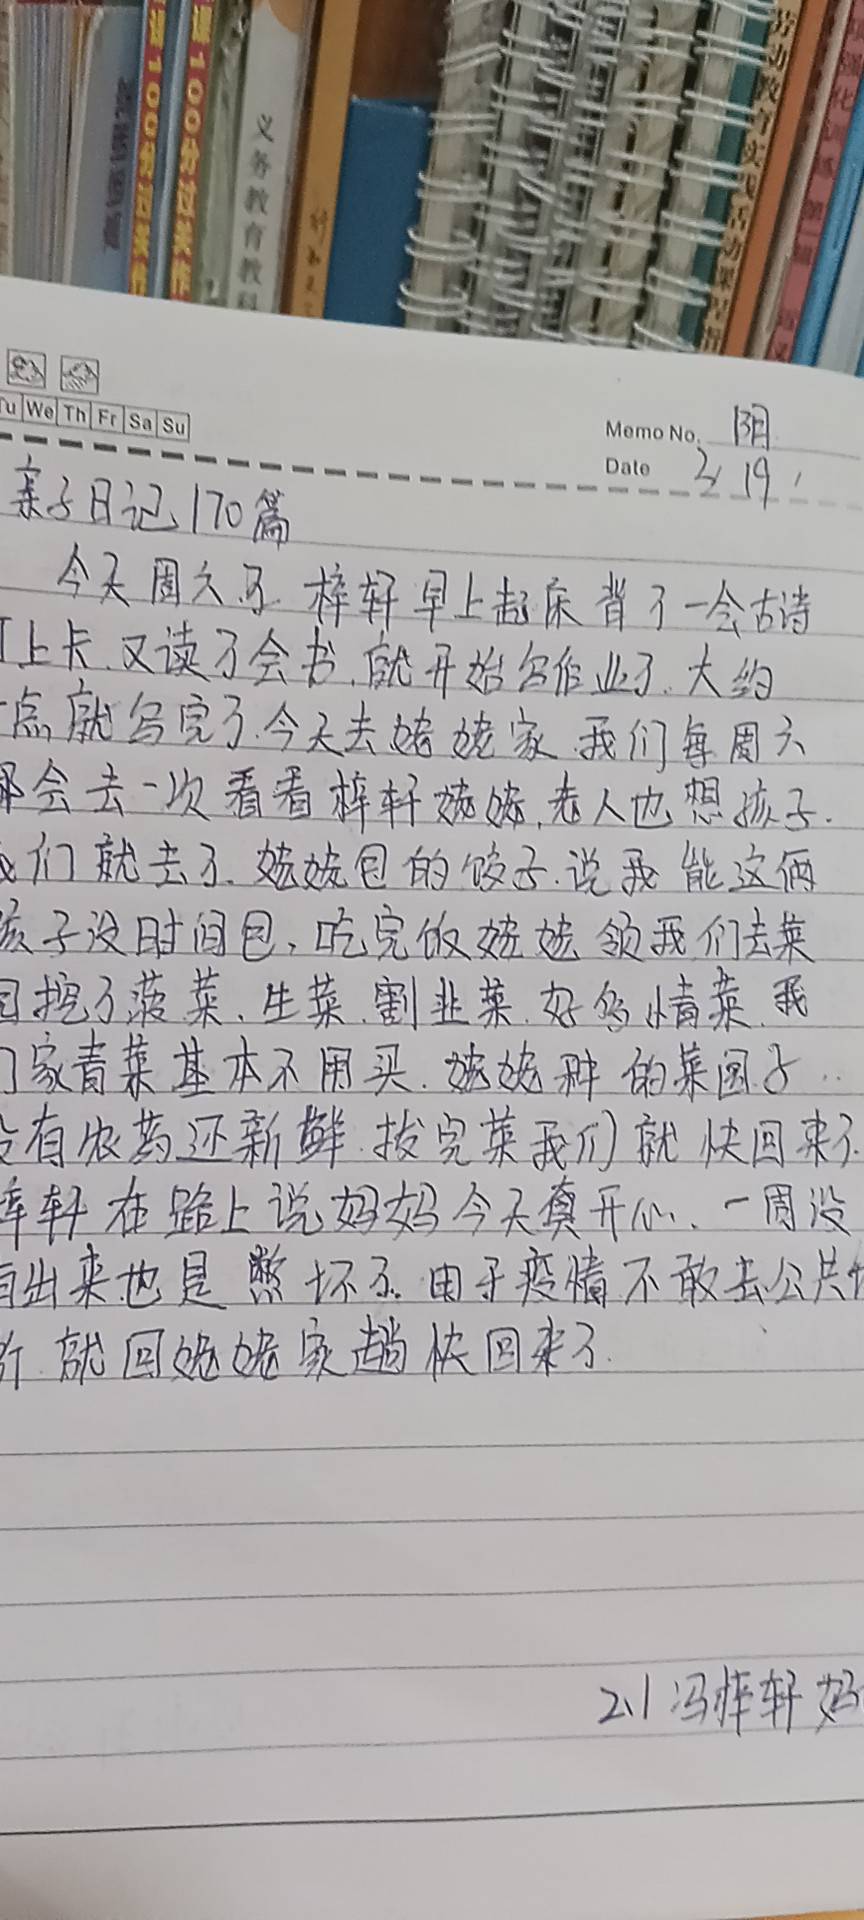 义务教育教科
劳动教育实践活动
Tu We Th Fr Sa Su
Memo No. 阴
Date 3.19.
亲子日记170篇
今天周六了.梓轩早上起床背了一会古诗
上卡.又读了会书.就开始写作业了.大约
点就写完了.今天去姥姥家.我们每周六
都会去一次看看梓轩姥姥.老人也想孩子.
我们就去了.姥姥包的饺子.说我能这俩
孩子没时间包,吃完饭姥姥领我们去菜
园挖了菠菜.生菜.割韭菜.好多情菜.我
们家青菜基本不用买.姥姥种的菜园子..
没有农药还新鲜.拔完菜我们就快回来了.
梓轩在路上说妈妈今天真开心.一周没
有出来也是憋坏了.由于疫情不敢去公共
所.就回姥姥家趟快回来了.
2.1冯梓轩妈